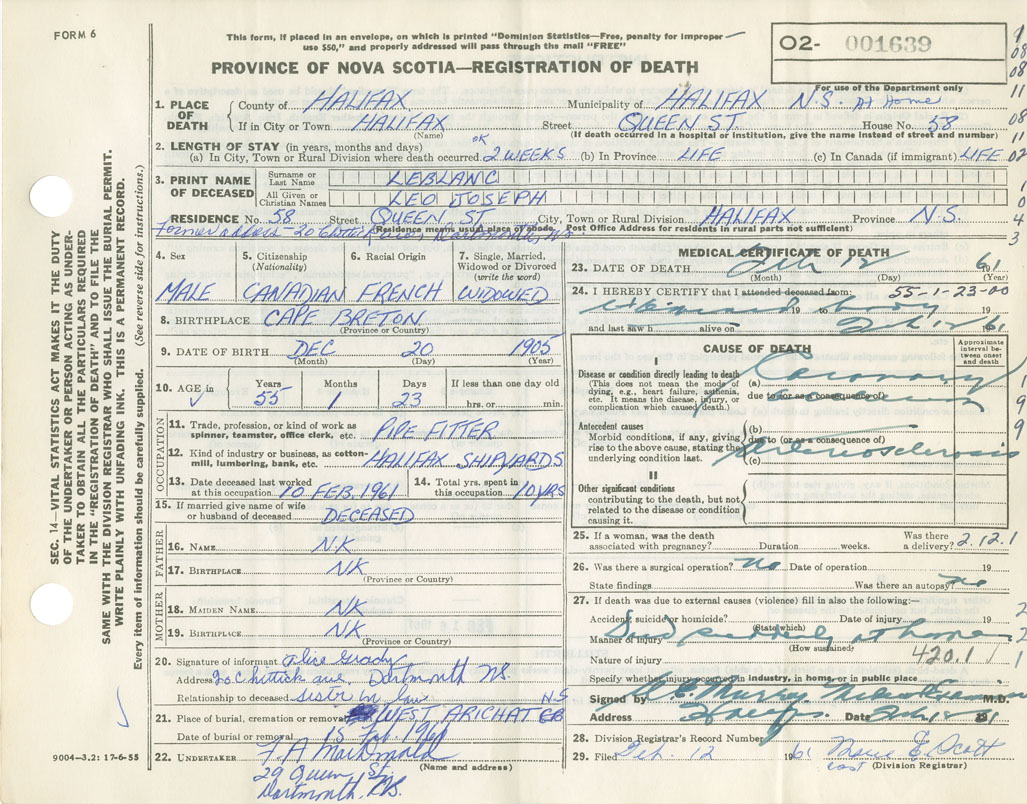 FORM 6
This form, if placed in an envelope, on which is printed "Dominion Statistics—Free, penalty for improper
use $50," and properly addressed will pass through the mail "FREE"
O2- 001639
For use of the Department only
PROVINCE OF NOVA SCOTIA—REGISTRATION OF DEATH
1. PLACE OF DEATH
County of HALIFAX Municipality of HALIFAX N.S. At Home
If in City or Town HALIFAX Street QUEEN ST. House No. 58
(Name) (If death occurred in a hospital or institution, give the name instead of street and number)
2. LENGTH OF STAY (in years, months and days) OK
(a) In City, Town or Rural Division where death occurred 2 WEEKS (b) In Province LIFE (c) In Canada (if immigrant) LIFE
3. PRINT NAME OF DECEASED
Surname or Last Name LEBLANC
All Given or Christian Names LEO JOSEPH
RESIDENCE No. 58 Street QUEEN ST City, Town or Rural Division HALIFAX Province N.S.
Residence means usual place of abode. Post Office Address for residents in rural parts not sufficient)
4. Sex
MALE
5. Citizenship
(Nationality)
CANADIAN
6. Racial Origin
FRENCH
7. Single, Married,
Widowed or Divorced
(write the word)
WIDOWED
8. BIRTHPLACE CAPE BRETON
(Province or Country)
9. DATE OF BIRTH DEC 20 1905
(Month) (Day) (Year)
10. AGE in Years Months Days If less than one day old
55 1 23 hrs. or min.
OCCUPATION
11. Trade, profession, or kind of work as
spinner, teamster, office clerk, etc. PIPE FITTER
12. Kind of industry or business, as cotton-
mill, lumbering, bank, etc. HALIFAX SHIPYARDS
13. Date deceased last worked
at this occupation 10 FEB. 1961
14. Total yrs. spent in
this occupation 10 YRS
15. If married give name of wife
or husband of deceased DECEASED
FATHER
16. NAME NK
17. BIRTHPLACE NK
(Province or Country)
MOTHER
18. MAIDEN NAME NK
19. BIRTHPLACE NK
(Province or Country)
20. Signature of informant Alice Grady
Address 20 Chittick ave, Dartmouth NS.
Relationship to deceased sister in law N.S
21. Place of burial, cremation or removal WEST ARICHAT CB
Date of burial or removal 15 Feb. 1961
22. UNDERTAKER F. A MacDonald
(Name and address)
29 Queen St
Dartmouth, N.S.
9004—3.2: 17-6-55
MEDICAL CERTIFICATE OF DEATH
23. DATE OF DEATH Feb 12 1961
(Month) (Day) (Year)
24. I HEREBY CERTIFY that I attended deceased from: 55-1-23-00
19 to
and last saw h alive on Feb 12 1961
CAUSE OF DEATH
Approximate interval between onset and death
I
Disease or condition directly leading to death
(This does not mean the mode of
dying, e.g., heart failure, asthenia,
etc. It means the disease, injury, or
complication which caused death.)
(a) Coronary
due to (or as a consequence of)
Antecedent causes
Morbid conditions, if any, giving
rise to the above cause, stating the
underlying condition last.
(b)
due to (or as a consequence of)
(c) Arteriosclerosis
II
Other significant conditions
contributing to the death, but not
related to the disease or condition
causing it.
25. If a woman, was the death Was there
associated with pregnancy? Duration weeks. a delivery? 2.12.1
26. Was there a surgical operation? no Date of operation 19
State findings Was there an autopsy? no
27. If death was due to external causes (violence) fill in also the following:—
Accident, suicide or homicide? Date of injury 19
(State which)
Manner of injury Died suddenly at home
(How sustained)
Nature of injury 420.1
Specify whether injury occurred in industry, in home, or in public place
Signed by Murray M.D.
Address Halifax Date Feb 1961
28. Division Registrar's Record Number
29. Filed Feb. 12 1961 Marie E. Scott
(Division Registrar)
SEC. 14—VITAL STATISTICS ACT MAKES IT THE DUTY
OF THE UNDERTAKER OR PERSON ACTING AS UNDER-
TAKER TO OBTAIN ALL THE PARTICULARS REQUIRED
IN THE "REGISTRATION OF DEATH" AND TO FILE THE
SAME WITH THE DIVISION REGISTRAR WHO SHALL ISSUE THE BURIAL PERMIT.
WRITE PLAINLY WITH UNFADING INK. THIS IS A PERMANENT RECORD.
Every item of information should be carefully supplied. (See reverse side for instructions.)